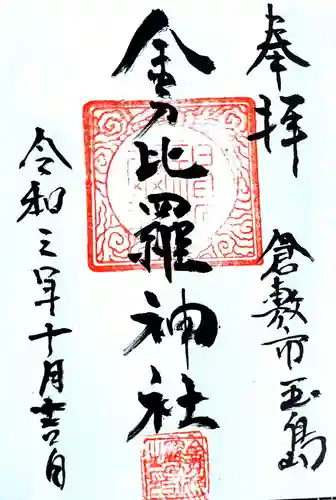 奉拝
倉敷市玉島
金刀比羅神社
令和三年十月廿六日